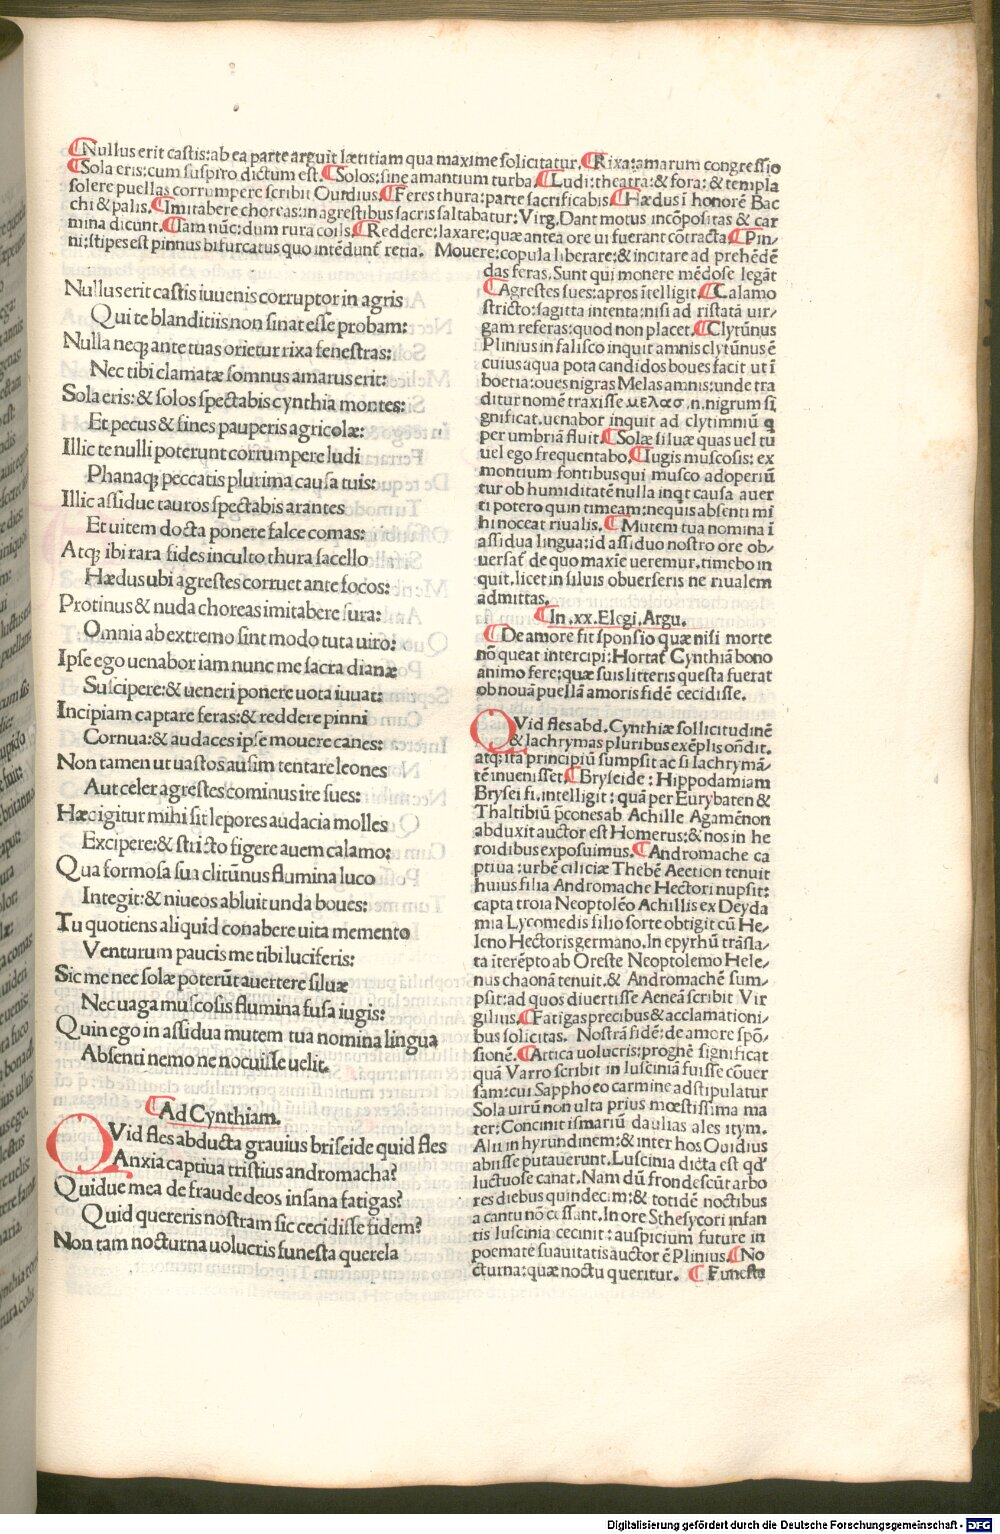 ¶Nullus erit castis:ab ea parte arguit lætitiam qua maxime solicitatur.¶Rixa:amarum congressio
¶Sola eris:cum suspiro dictum est.¶Solos:sine amantium turba.¶Ludi:theatra:& fora:& templa
solere puellas corrumpere scribit Ouidius.¶Feres thura:parte sacrificabis.¶Hædus ī honorē Bac
chi & palis.¶Imitabere choreas:in agrestibus sacris saltabatur:Virg.Dant motus incōpositas & car
mina dicunt.¶Iam nūc:dum rura colis.¶Reddere:laxare:quæ antea ore ui fuerant cōtracta.¶Pin/
ni:stipes est pinnus bifurcatus quo intēdunt retia. Mouere:copula liberare:& incitare ad prehēdē
das feras.Sunt qui monere mēdose legāt
Nullus erit castis iuuenis corruptor in agris
Qui te blanditiis non sinat esse probam:
Nulla neq; ante tuas orietur rixa fenestras:
Nec tibi clamatæ somnus amarus erit:
Sola eris:& solos spectabis cynthia montes:
Et pecus & fines pauperis agricolæ:
Illic te nulli poterunt corrumpere ludi
Phanaq; peccatis plurima causa tuis:
Illic assidue tauros spectabis arantes
Et uitem docta ponere falce comas:
Atq; ibi rara fides inculto thura sacello
Hædus ubi agrestes corruet ante focos:
Protinus & nuda choreas imitabere sura:
Omnia ab extremo sint modo tuta uiro:
Ipse ego uenabor iam nunc me sacra dianæ
Suscipere:& ueneri ponere uota iuuat:
Incipiam captare feras:& reddere pinni
Cornua:& audaces ipse mouere canes:
Non tamen ut uastos ausim tentare leones
Aut celer agrestes cominus ire sues:
Hæc igitur mihi sit lepores audacia molles
Excipere:& stricto figere auem calamo:
Qua formosa sua clitūnus flumina luco
Integit:& niueos abluit unda boues:
Tu quotiens aliquid conabere uita memento
Venturum paucis me tibi luciferis:
Sic me nec solæ poterūt auertere siluæ
Nec uaga muscosis flumina fusa iugis:
Quin ego in assidua mutem tua nomina lingua
Absenti nemo ne nocuisse uelit.
¶Ad Cynthiam.
QVid fles abducta grauius briseide quid fles
Anxia captiua tristius andromacha?
Quidue mea de fraude deos insana fatigas?
Quid quereris nostram sic cecidisse fidem?
Non tam nocturna uolucris funesta querela
¶Agrestes sues:apros ītelligit.¶Calamo
stricto:sagitta intenta:nisi ad ristatā uir/
gam referas:quod non placet.¶Clytūnus
Plinius in falisco inquit amnis clytūnus ē
cuius aqua pota candidos boues facit ut ī
boetia:oues nigras Melas amnis:unde tra
ditur nomē traxisse μελασ.n.nigrum si
gnificat.uenabor inquit ad clytimniū q
per umbriā fluit.¶Solæ siluæ quas uel tu
uel ego frequentabo.¶Iugis muscosis: ex
montium fontibus qui musco adoperiū
tur ob humiditatē nulla inqt causa auer
ti potero quin timeam:nequis absenti mi
hi noceat riualis.¶Mutem tua nomina ī
assidua lingua:id assiduo nostro ore ob/
uersat de quo maxīe ueremur.timebo in
quit.licet in siluis obuerseris ne riualem
admittas.
¶In .xx. Elegi. Argu.
¶De amore fit sponsio quæ nisi morte
nō queat intercipi:Hortat Cynthiā bono
animo fere:quæ suis litteris questa fuerat
ob nouā puellā amoris fidē cecidisse.
QVid fles abd. Cynthiæ sollicitudinē
& lachrymas pluribus exēplis oñdit.
atq; ita principiū sumpsit ac si lachrymā/
tē inuenisset.¶Bryseide: Hippodamiam
Brysei fi.intelligit: quā per Eurybaten &
Thaltibiū p̄cones ab Achille Agamēnon
abduxit auctor est Homerus:& nos in he
roidibus exposuimus.¶Andromache ca
ptiua:urbē ciliciæ Thebē Aeetion tenuit
huius filia Andromache Hectori nupsit:
capta troia Neoptolēo Achillis ex Deyda
mia Lycomedis filio sorte obtigit cū He/
leno Hectoris germano.In epyrhū trāsla/
ta īterēpto ab Oreste Neoptolemo Hele/
nus chaonā tenuit.& Andromachē sum/
psit:ad quos diuertisse Aeneā scribit Vir
gilius.¶Fatigas precibus & acclamationi/
bus solicitas. Nostrā fidē:de amore spō/
sionē.¶Attica uolucris:prognē significat
quā Varro scribit in lusciniā fuisse cōuer
sam:cui Sappho eo carmine adstipulatur
Sola uirū non ulta prius mœstissima ma
ter:Concinit ismariū daulias ales itym.
Alii in hyrundinem:& inter hos Ouidius
abiisse putauerunt.Luscinia dicta est qd'
luctuose canat.Nam dū frondescūt arbo
res diebus quindecim:& totidē noctibus
a cantu nō cessant.In ore Sthesycori infan
tis luscinia cecinit:auspicium future in
poemate suauitatis auctor ē Plinius.¶No
cturna:quæ noctu queritur. ¶Funesta
Digitalisierung gefördert durch die Deutsche Forschungsgemeinschaft - DFG